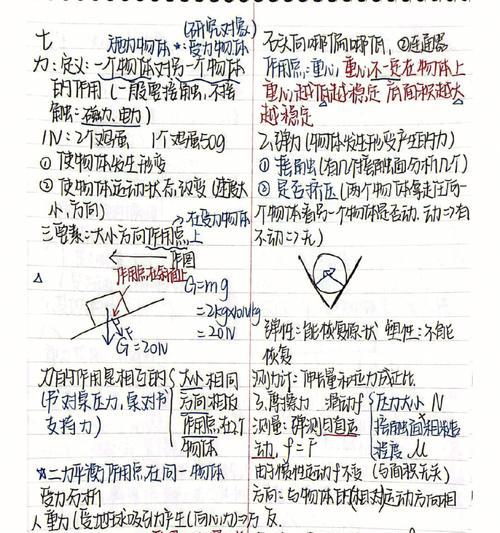 七
(研究对象)
施力物体 *:受力物体
力:定义:一个物体对另一个物体
的作用(一般要接触,不接
触:磁力,电力)
1N=2个鸡蛋 1个鸡蛋50g
① 使物体发生形变
② 使物体运动状态改变(速度大
小,方向)
→在受力物体
三要素:大小方向作用点 上
作图
作用点在斜面上
G=mg
=2kg×10N/kg
=20N
F
G=20N
力的作用是相互的
(书对桌压力,桌对书
支持力)
大小相同
方向相反
作用点在2个
物体
*二力平衡:作用点在同一物体
受力分析
1、重力(受地球吸引力产生(同心力)=>
石头向哪偏向哪偏,②连通器
作用点:重心,重心不一定在物体上
重心越低越稳定 底面积越大
越稳定
2、弹力(物体发生形变产生的力)
① 接触(有几个接触面分析几个)
② 是否挤压(两个物体拿走任何一
个物体看另一个物体是否动.动=>有
不动=>无)
弹性:能恢复原状 塑性:不能
恢复
测力计:伸长量和拉力成正比.
3、摩擦力 滑动f
压力大小 N
×
接触面粗糙
程度 μ
测量:弹测匀直运
动,f=F
由于惯性运动f不变 (与面积无关)
方向:与物体的(相对)运动方向相
反.